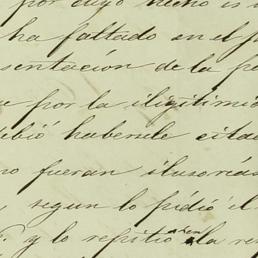 por cuyo hecho es i
ha faltado en el p
sentación de la pe
e por la ilegitimid
ibió habersele citad
no fueran ilusorias
, segun lo pidió el
y lo repitió en la re